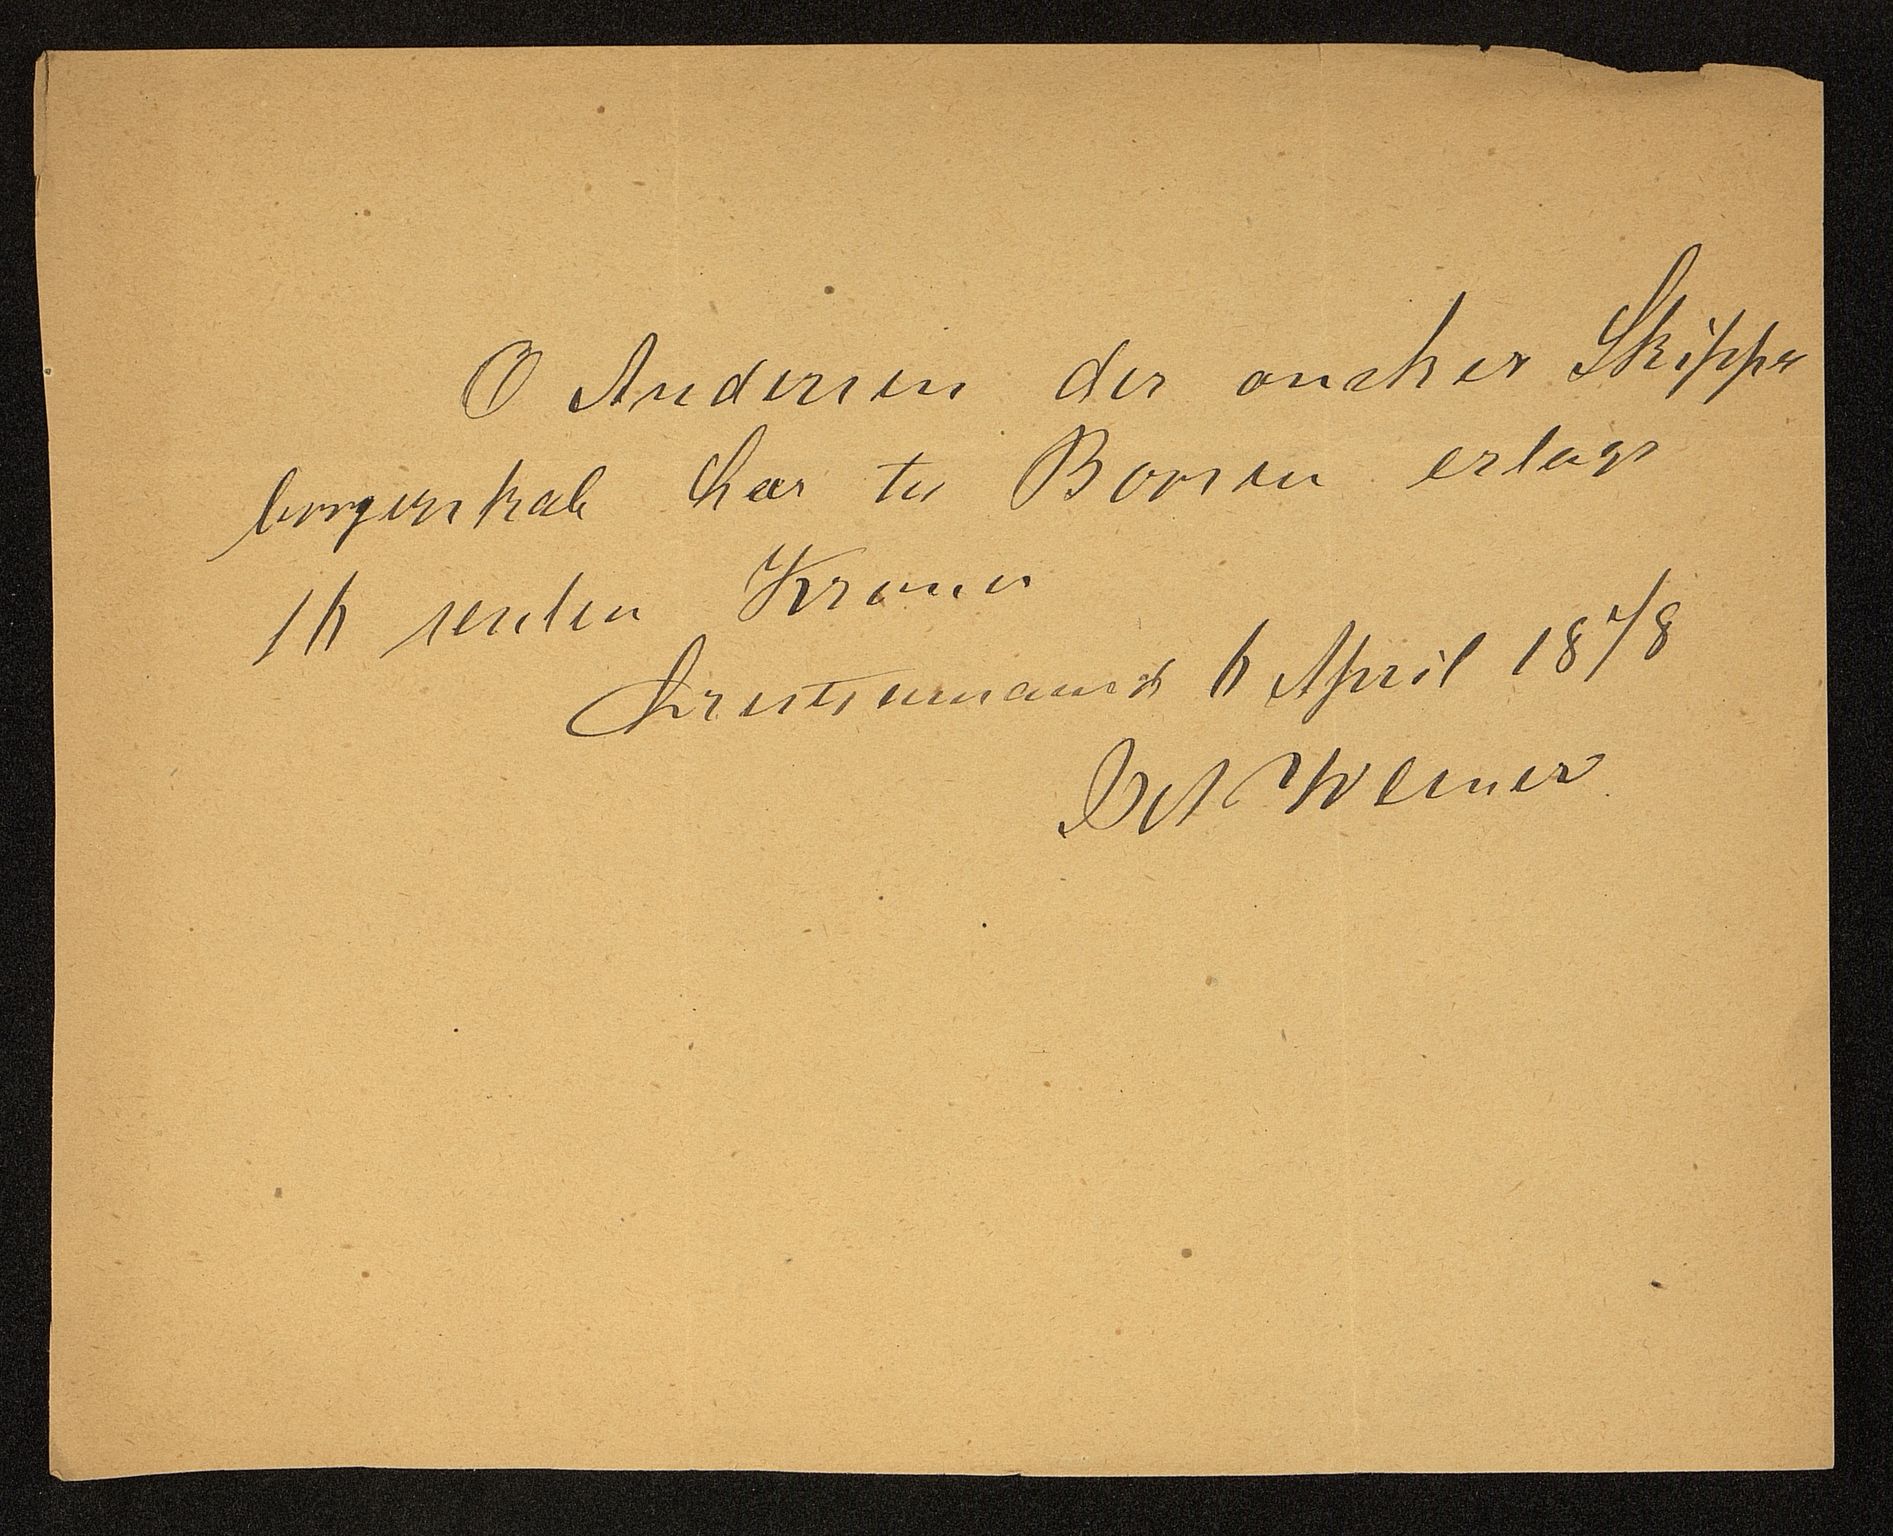 O Andersen der ønsker Skipper
borgerskab har til Børsen erlagt
16 sexten Kroner
Christianssand 6 April 1878
Werner